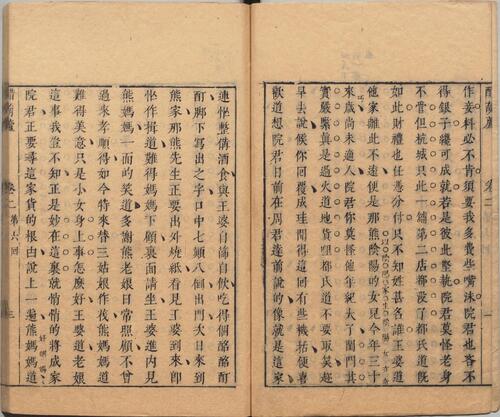 醋葫蘆
卷二
作妾料必不肯須要我多費些嘴沫院君也吝不
得銀子纔可成就若是彼此堅執院君莫怪老身
不當但杭城只此一舖第二店都沒了都氏道既
如此財禮也任憑分付只不知姓甚名誰王婆道
他家離此不遠便是那熊陰陽的女兒今年三十
以陰陽家生陰陽女方奇
來歲尚未適人院君你莫怪他年紀大了閨門
實嚴緊真是避火道地貨都氏道不要取笑趁
早去說候你回覆成珪聞得這回有些機括便喜
歡道想院君日前在周君達前說的像就是這
連忙整備酒食與王婆自篩自飲吃得個酩酊
酊脚下寫出之字口中七顛八倒出門次日來到
熊家那熊先生正要出外燒紙看見王婆到來即
忙作揖道難得媽媽下顧裏面請坐王婆進內見
熊媽媽一面的笑道多謝熊老娘日常照顧不曾
過來孝順得如今特來替三姑娘作伐熊媽媽道
難得美意只是小女身上事怎麽好王婆道老娘
這事我豈不知正是妙在這裏就悄悄的將成家
院君正要尋這家貨的根由說上一遍熊媽媽道
醋葫蘆
卷二第六回
三